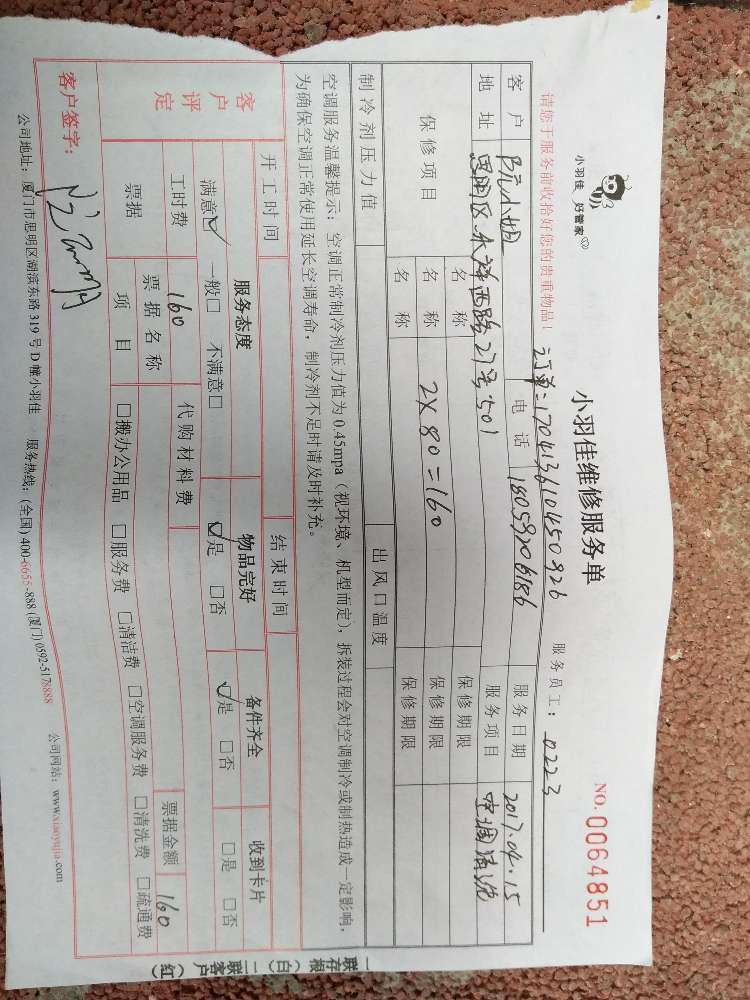 小羽佳 好管家
小羽佳维修服务单
NO. 0064851
请您于服务前收拾好您的贵重物品!
订单:170413610450926
服务员工: 0223
客户 阮小姐 电话 18059206186 服务日期 2017.04.15
地址 思明区 西路27号501 服务项目 空调清洗
保修项目 名称 保修期限
名称 2X80=160 保修期限
名称 保修期限
制冷剂压力值 出风口温度
空调服务温馨提示:空调正常制冷剂压力值为0.45mpa(视环境、机型而定),拆装过程会对空调制冷或制热造成一定影响,
为确保空调正常使用延长空调寿命,制冷剂不足时请及时补充。
开工时间 结束时间
客户评定 服务态度 物品完好 备件齐全 收到卡片
满意☑ 一般□ 不满意□ ☑是 □否 ☑是 □否 □是 □否
工时费 160 代购材料费 票据金额 160
票据 票据名称项目 □搬办公用品 □服务费 □清洁费 □空调服务费 □清洗费 □疏通费
客户签字:
公司地址:厦门市思明区湖滨东路319号D幢小羽佳 服务热线:(全国)400-6655-888(厦门)0592-5178888 公司网站:www.xiaoyujia.com
一联存根(白)二联客户(红)